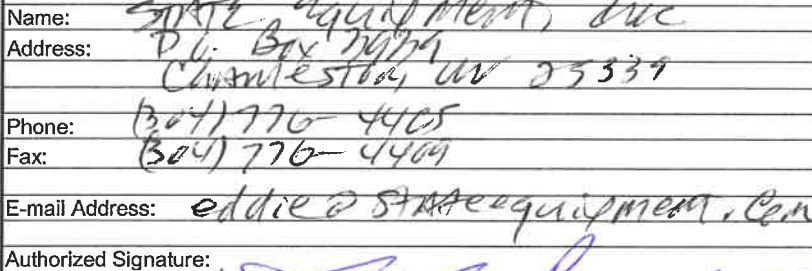 Name: STATE Equipment, Inc
Address: P.O. Box 3939
Charleston, WV 25339
Phone: (304) 776-4405
Fax: (304) 776-4409
E-mail Address: eddie@stateequipment.com
Authorized Signature: